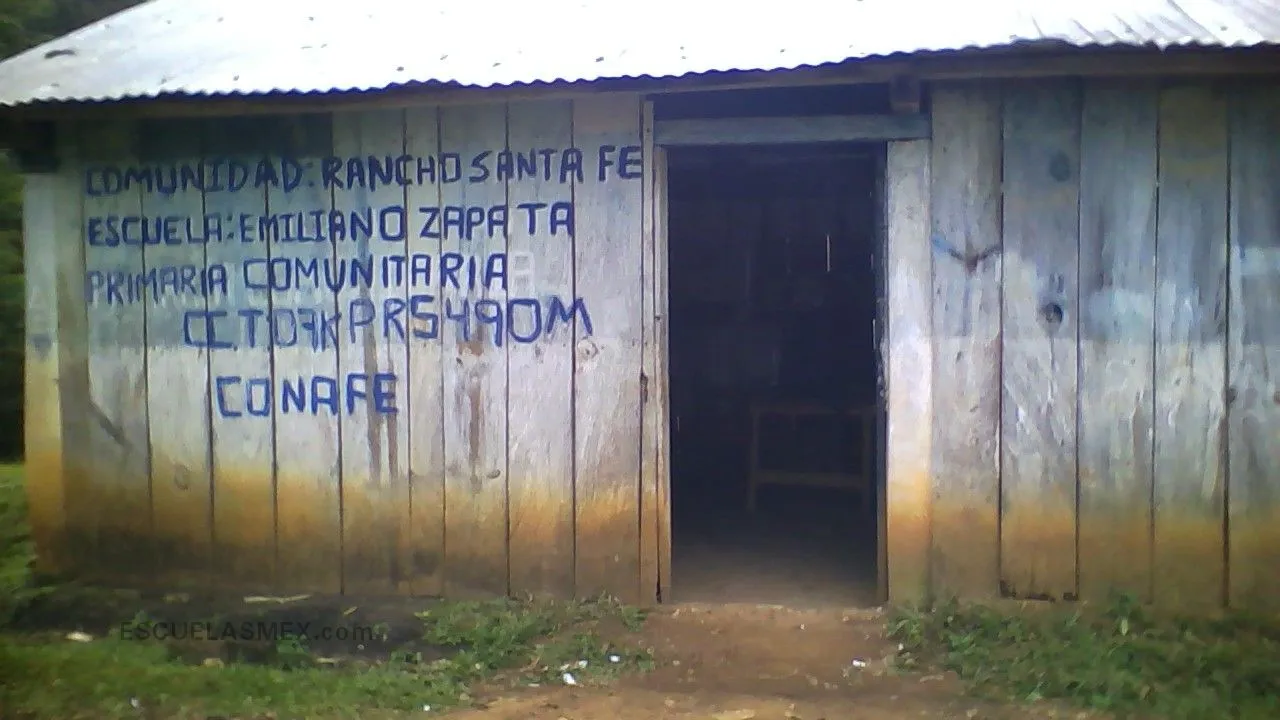 COMUNIDAD: RANCHO SANTA FE
ESCUELA: EMILIANO ZAPATA
PRIMARIA COMUNITARIA
C.C.T. 07KPR5490M
CONAFE
ESCUELASMEX.com